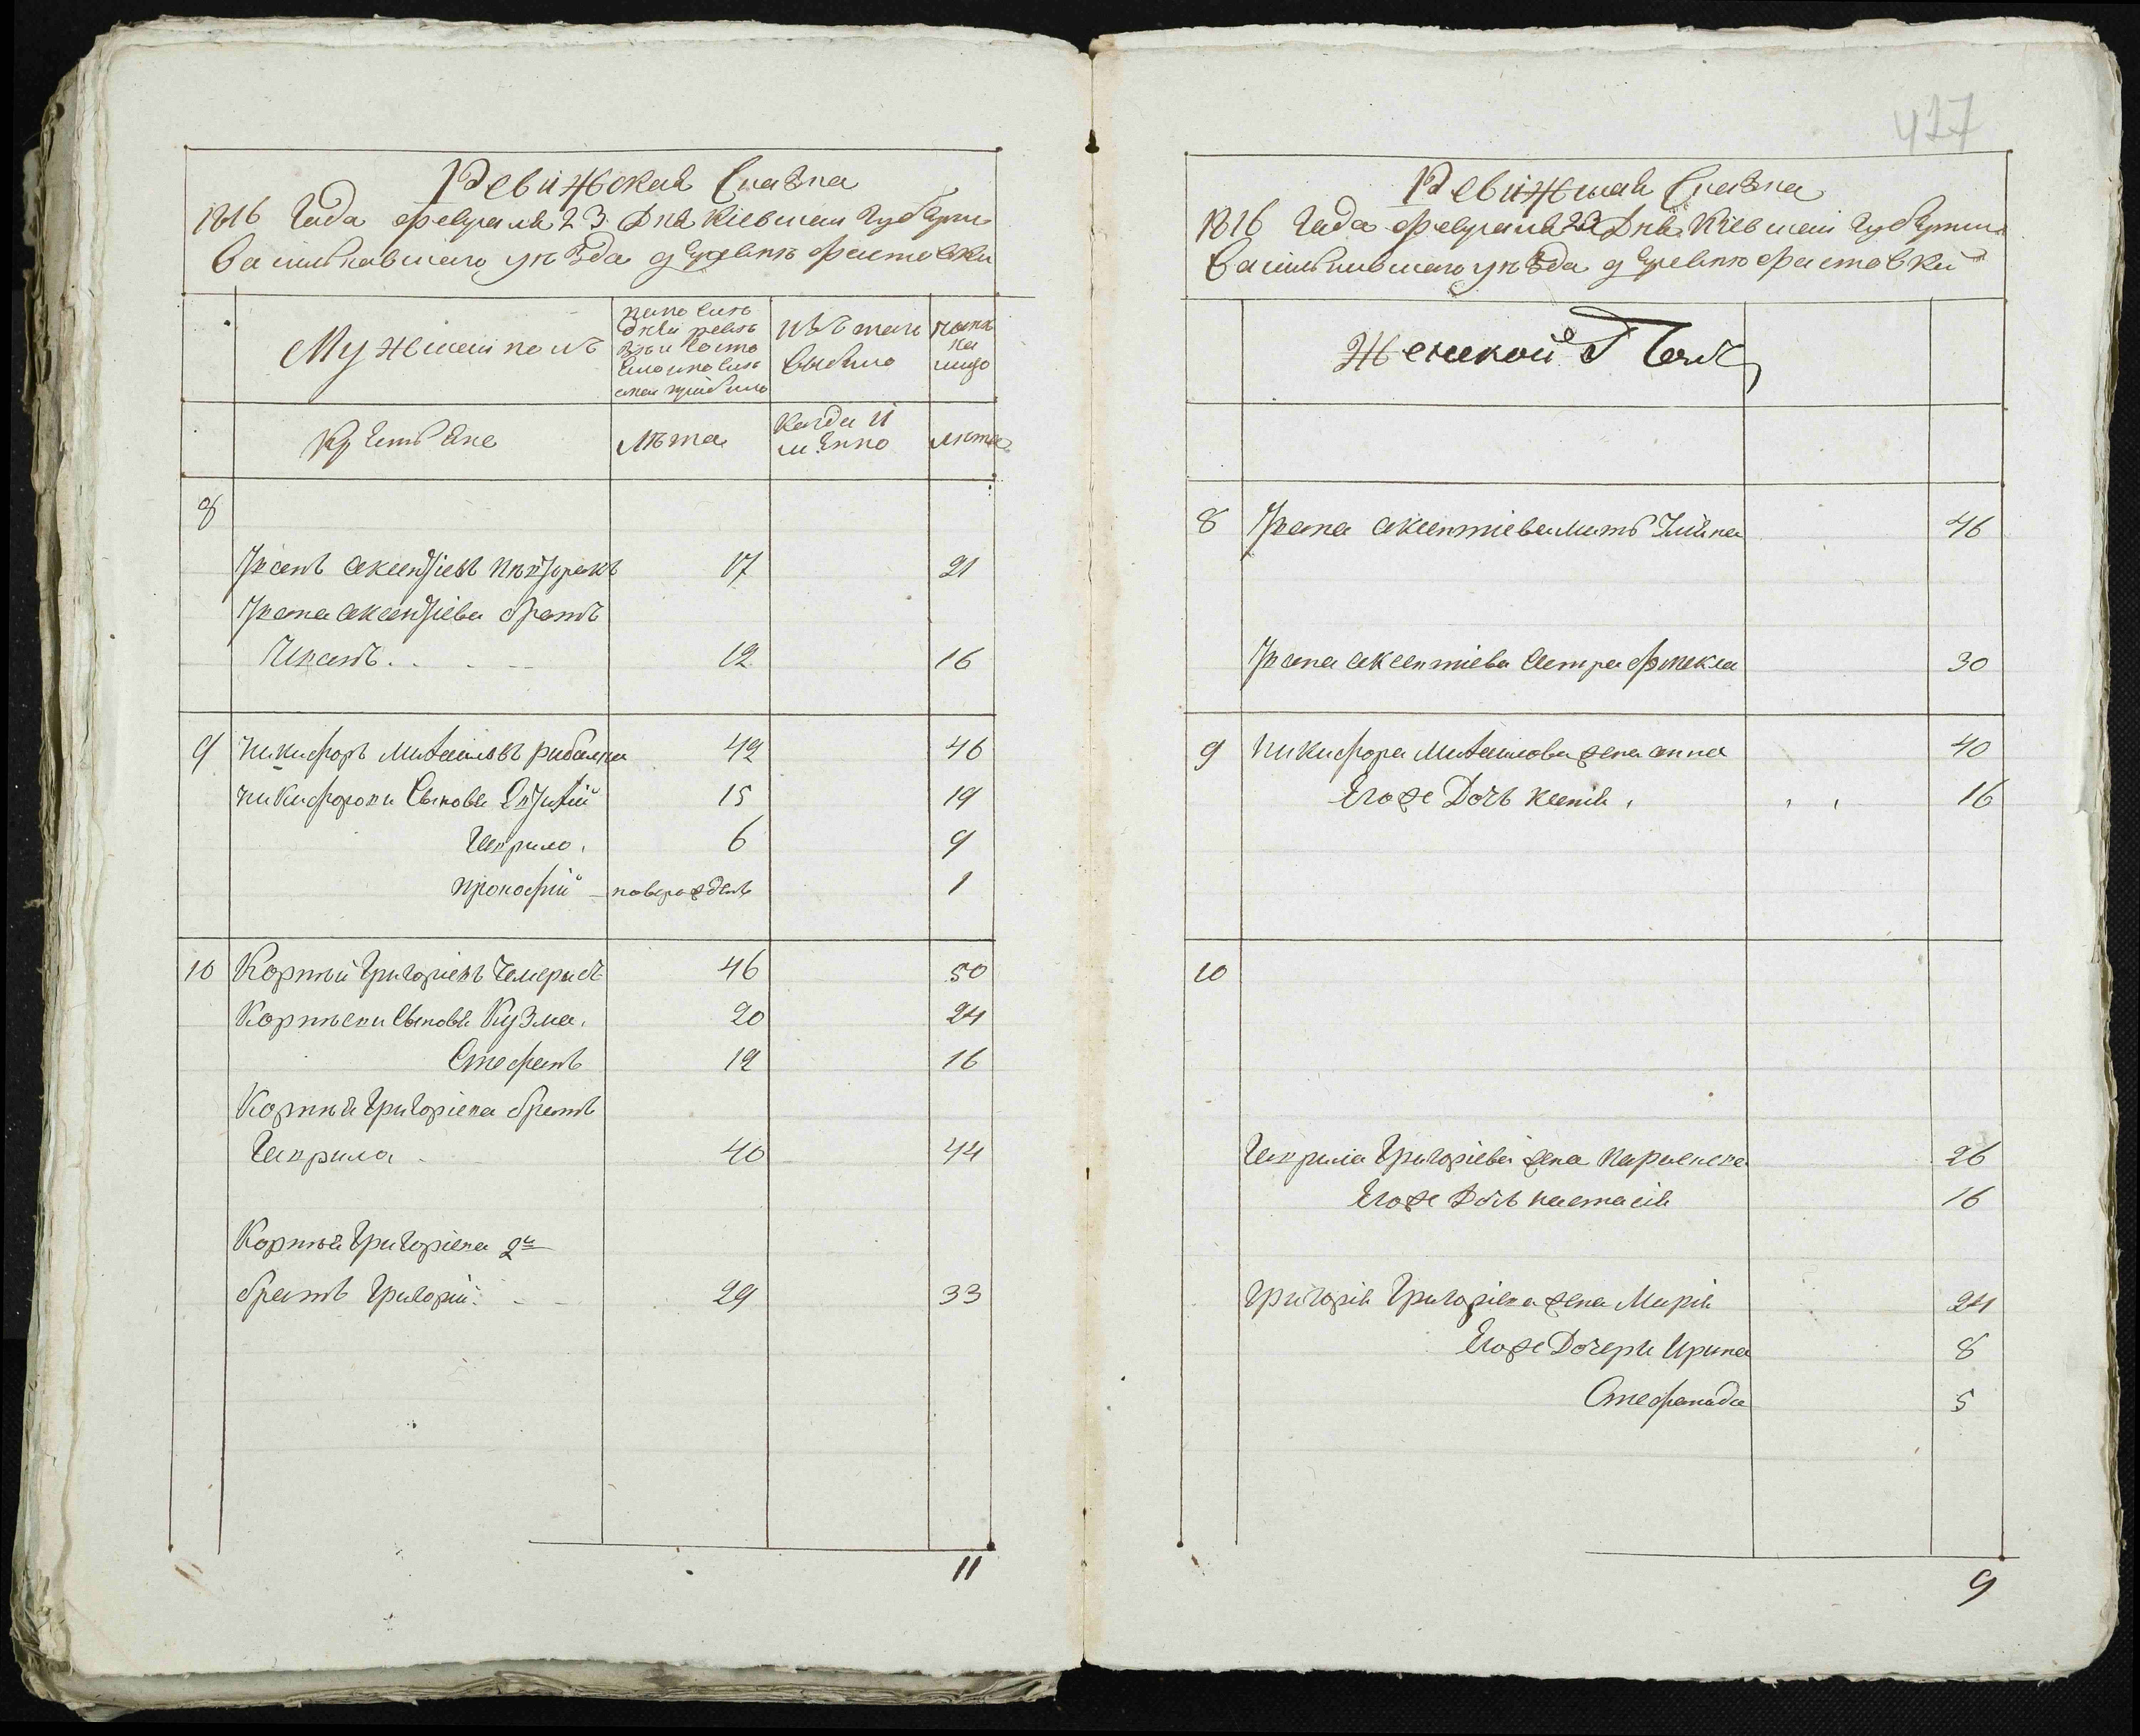 Ревижская Сказка
1816 Года февраля 23 Дня Кіевской Губерніи
Васильковскаго уезда деревни Фастовки
Мужескій полъ
выбыло
на лицо
Крестьяне
Лета
Когда и
лета
8
Иванъ Аксентіевъ 17 21
Ивана Аксентіева братъ
Игнатъ 12 16
9 Никифоръ Михаиловъ рибалка 42 46
Никифоровы Сыновья Евтихій 15 19
Гаврило 6 9
Прокофій новорожденъ 1
10 Корній Григоріевъ Чемерысъ 46 50
Корніевы Сыновья Кузма 20 24
Стефанъ 12 16
Корнія Григоріева братъ
Гаврила 40 44
Корнія Григоріева 2й
братъ Григорій 29 33
11
427
Ревижская Сказка
1816 Года февраля 23 Дня Кіевской Губерніи
Васильковскаго уезда деревни Фастовки
Женской Полъ
8 Ивана Аксентіева мать 46
Ивана Аксентіева сестра Фтекла 30
9 Никифора Михаилова жена анна 40
Егоже Дочь Ксенія 16
10
Гаврила Григоріева жена Параскева 26
Егоже Дочь настасія 16
Григорія Григоріева жена Марія 24
Егоже Дочери Ирина 8
Стефанида 5
9